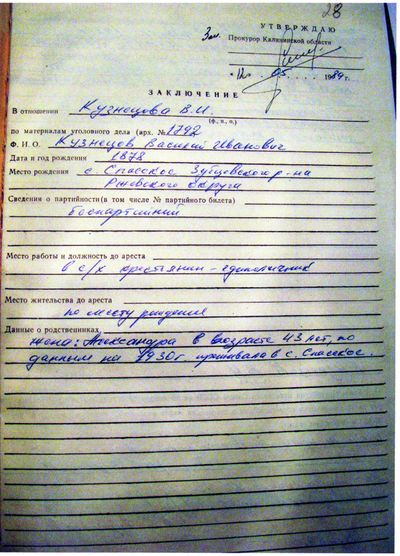 28
УТВЕРЖДАЮ
Зам. Прокурор Калининской области
"12" 05 1989 г.
ЗАКЛЮЧЕНИЕ
В отношении Кузнецова В.И.
(ф., и., о.)
по материалам уголовного дела (арх. № 1792
Ф. И. О. Кузнецов Василий Иванович
Дата и год рождения 1878
Место рождения с. Спасское Зубцовского р-на
Ржевского округа
Сведения о партийности (в том числе № партийного билета)
беспартийный
Место работы и должность до ареста
в с/х крестьянин-единоличник
Место жительства до ареста
по месту рождения
Данные о родственниках
жена: Александра в возрасте 43 лет, по
данным на 1930 г. проживала в с. Спасское.